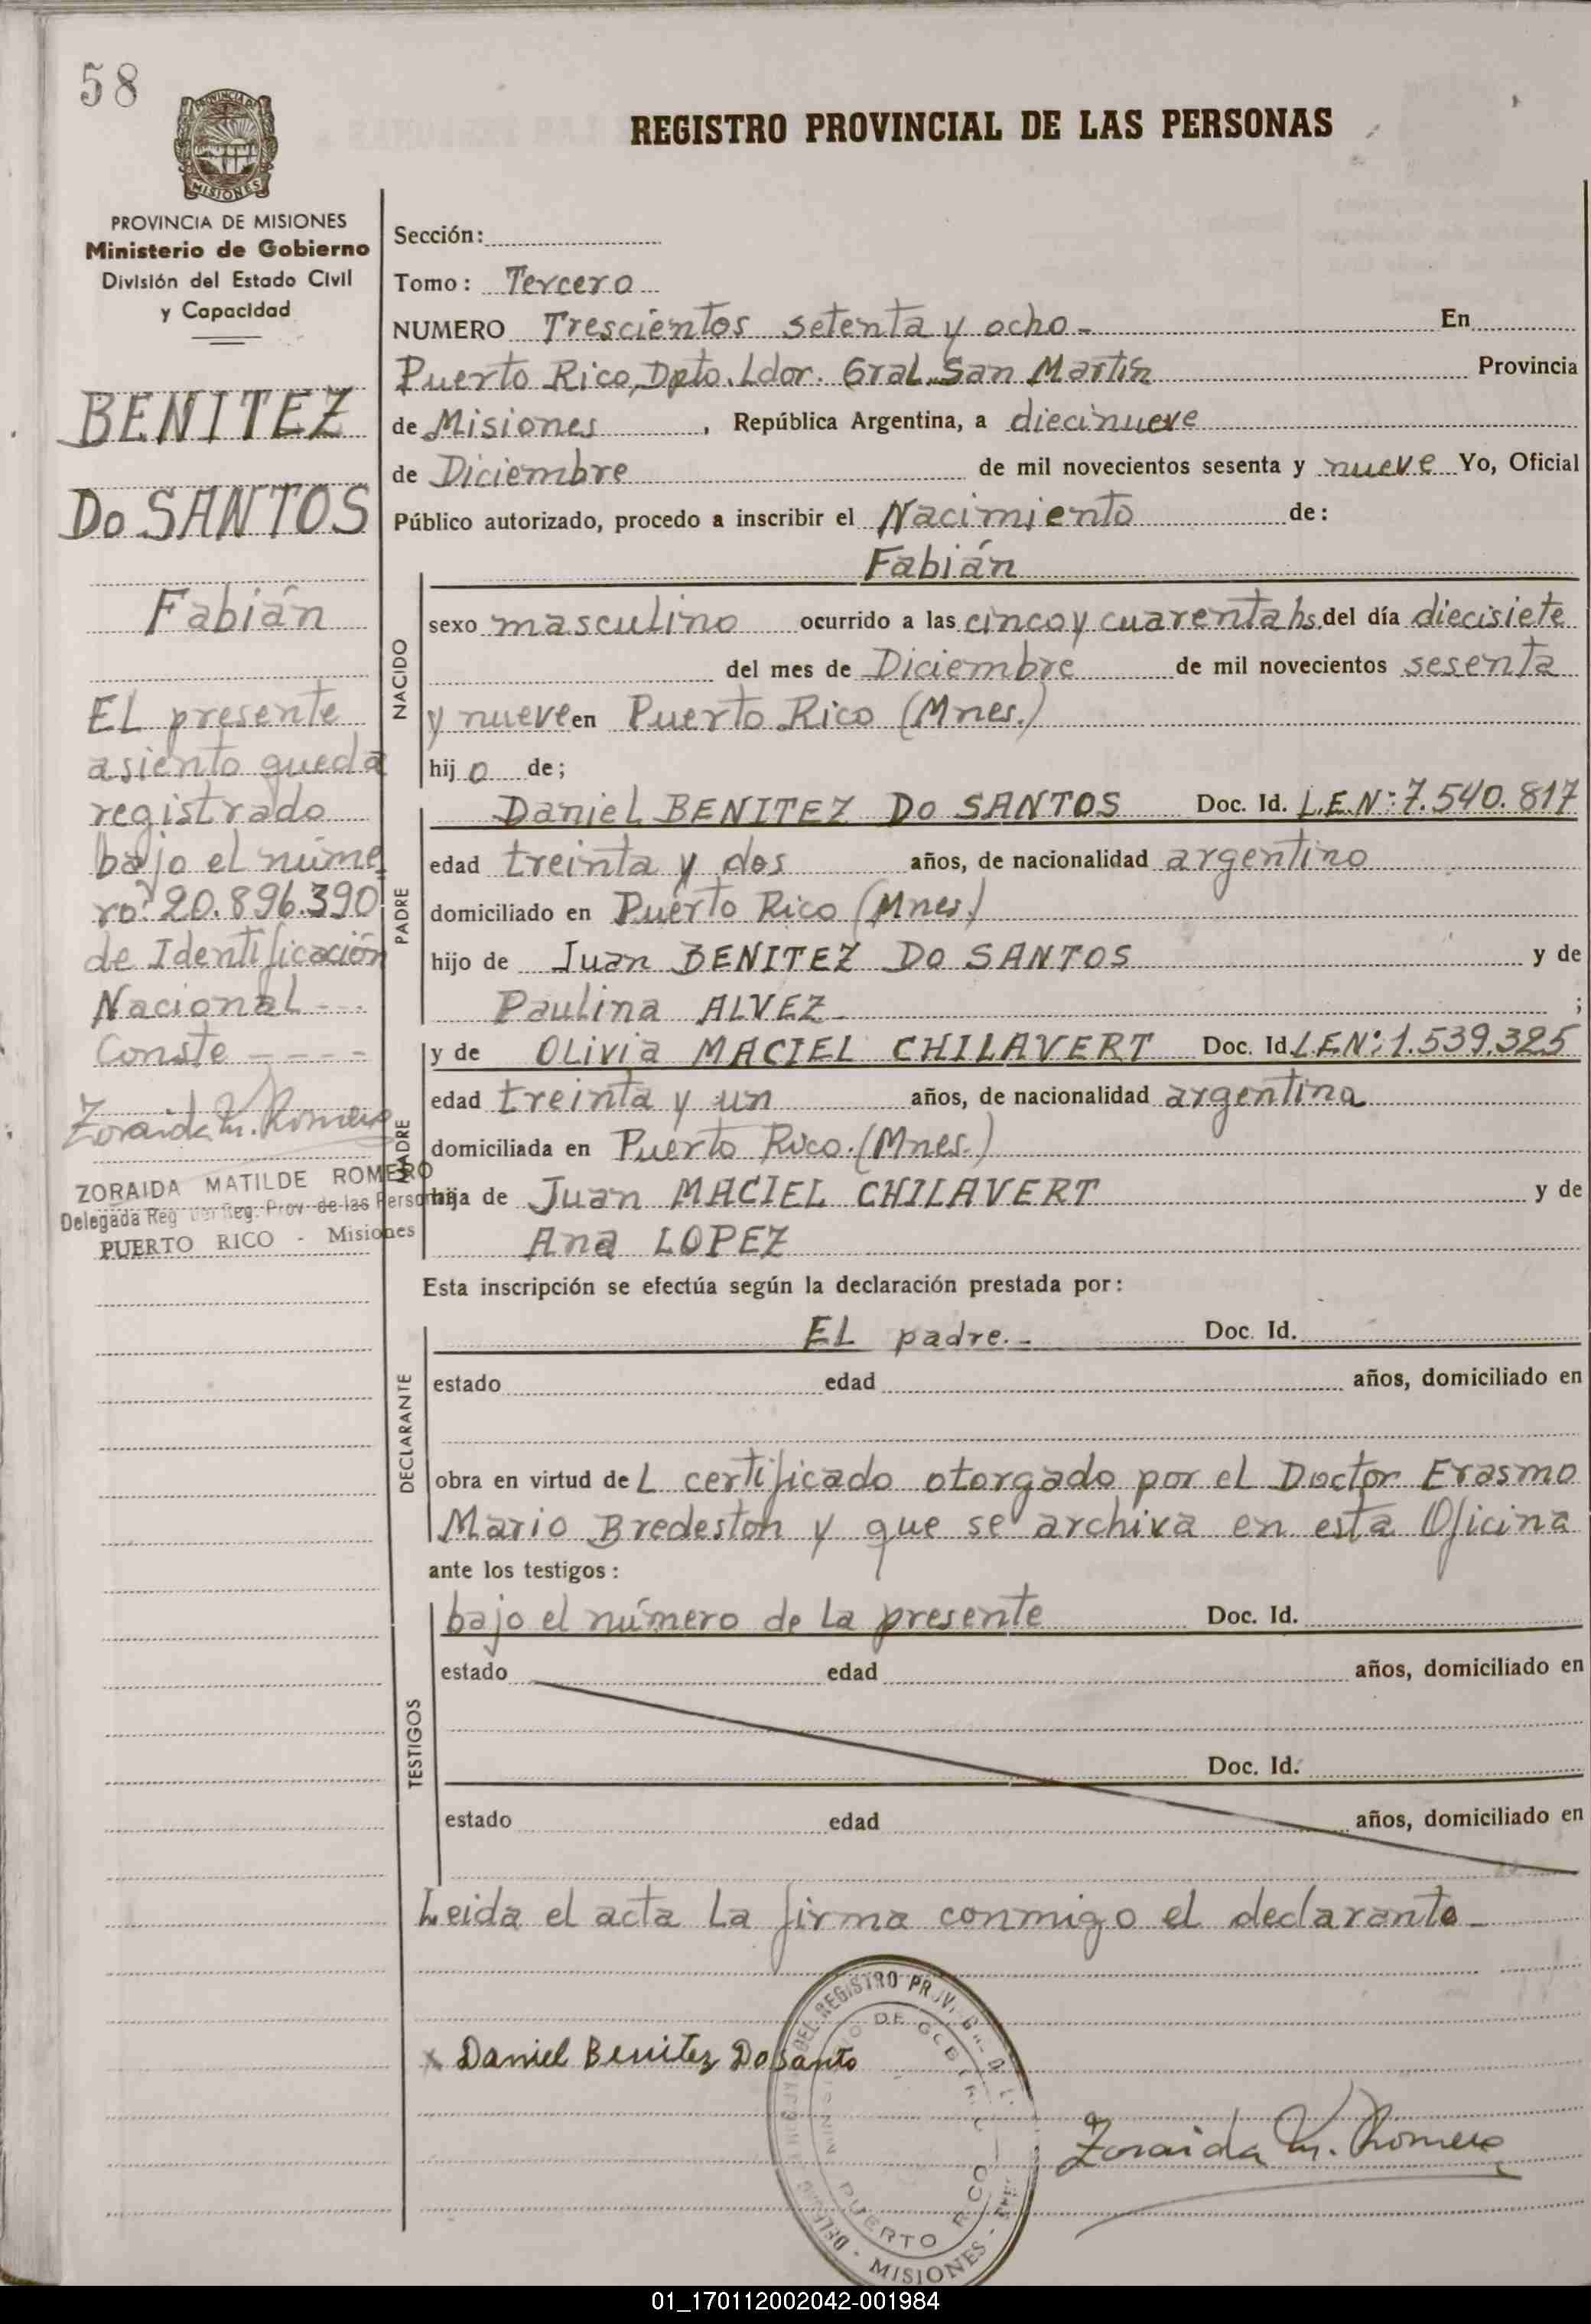 58
PROVINCIA DE
MISIONES
REGISTRO PROVINCIAL DE LAS PERSONAS
PROVINCIA DE MISIONES
Ministerio de Gobierno
División del Estado Civil
y Capacidad
BENITEZ
Do SANTOS
Fabián
EL presente
asiento queda
registrado
bajo el núme
ro: 20.896.390
de Identificación
Nacional ---
Conste ----
Zoraida M. Romero
ZORAIDA MATILDE ROMERO
Delegada Reg. del Reg. Prov. de las Personas
PUERTO RICO - Misiones
Sección:
Tomo: Tercero
NUMERO Trescientos setenta y ocho- En
Puerto Rico, Dpto. Ldor. Gral. San Martín Provincia
de Misiones, República Argentina, a diecinueve
de Diciembre de mil novecientos sesenta y nueve Yo, Oficial
Público autorizado, procedo a inscribir el Nacimiento de:
Fabián
NACIDO
sexo masculino ocurrido a las cinco y cuarenta hs. del día diecisiete
del mes de Diciembre de mil novecientos sesenta
y nueve en Puerto Rico (Mnes.)
hij o de;
PADRE
Daniel BENITEZ Do SANTOS Doc. Id. L.E.N: 7.540.817
edad treinta y dos años, de nacionalidad argentino
domiciliado en Puerto Rico (Mnes.)
hijo de Juan BENITEZ DO SANTOS y de
Paulina ALVEZ ;
MADRE
y de Olivia MACIEL CHILAVERT Doc. Id. L.E.N: 1.539.325
edad treinta y un años, de nacionalidad argentina
domiciliada en Puerto Rico. (Mnes.)
hija de Juan MACIEL CHILAVERT y de
Ana LOPEZ
Esta inscripción se efectúa según la declaración prestada por:
DECLARANTE
EL padre.- Doc. Id.
estado edad años, domiciliado en
obra en virtud de L certificado otorgado por el Doctor Erasmo
Mario Bredeston y que se archiva en esta Oficina
ante los testigos:
TESTIGOS
bajo el número de la presente Doc. Id.
estado edad años, domiciliado en
Doc. Id.
estado edad años, domiciliado en
Leida el acta la firma conmigo el declarante-
x Daniel Benitez Do Santo
DEL REGISTRO
PUERTO RICO
MISIONES
Zoraida M. Romero
01_170112002042-001984